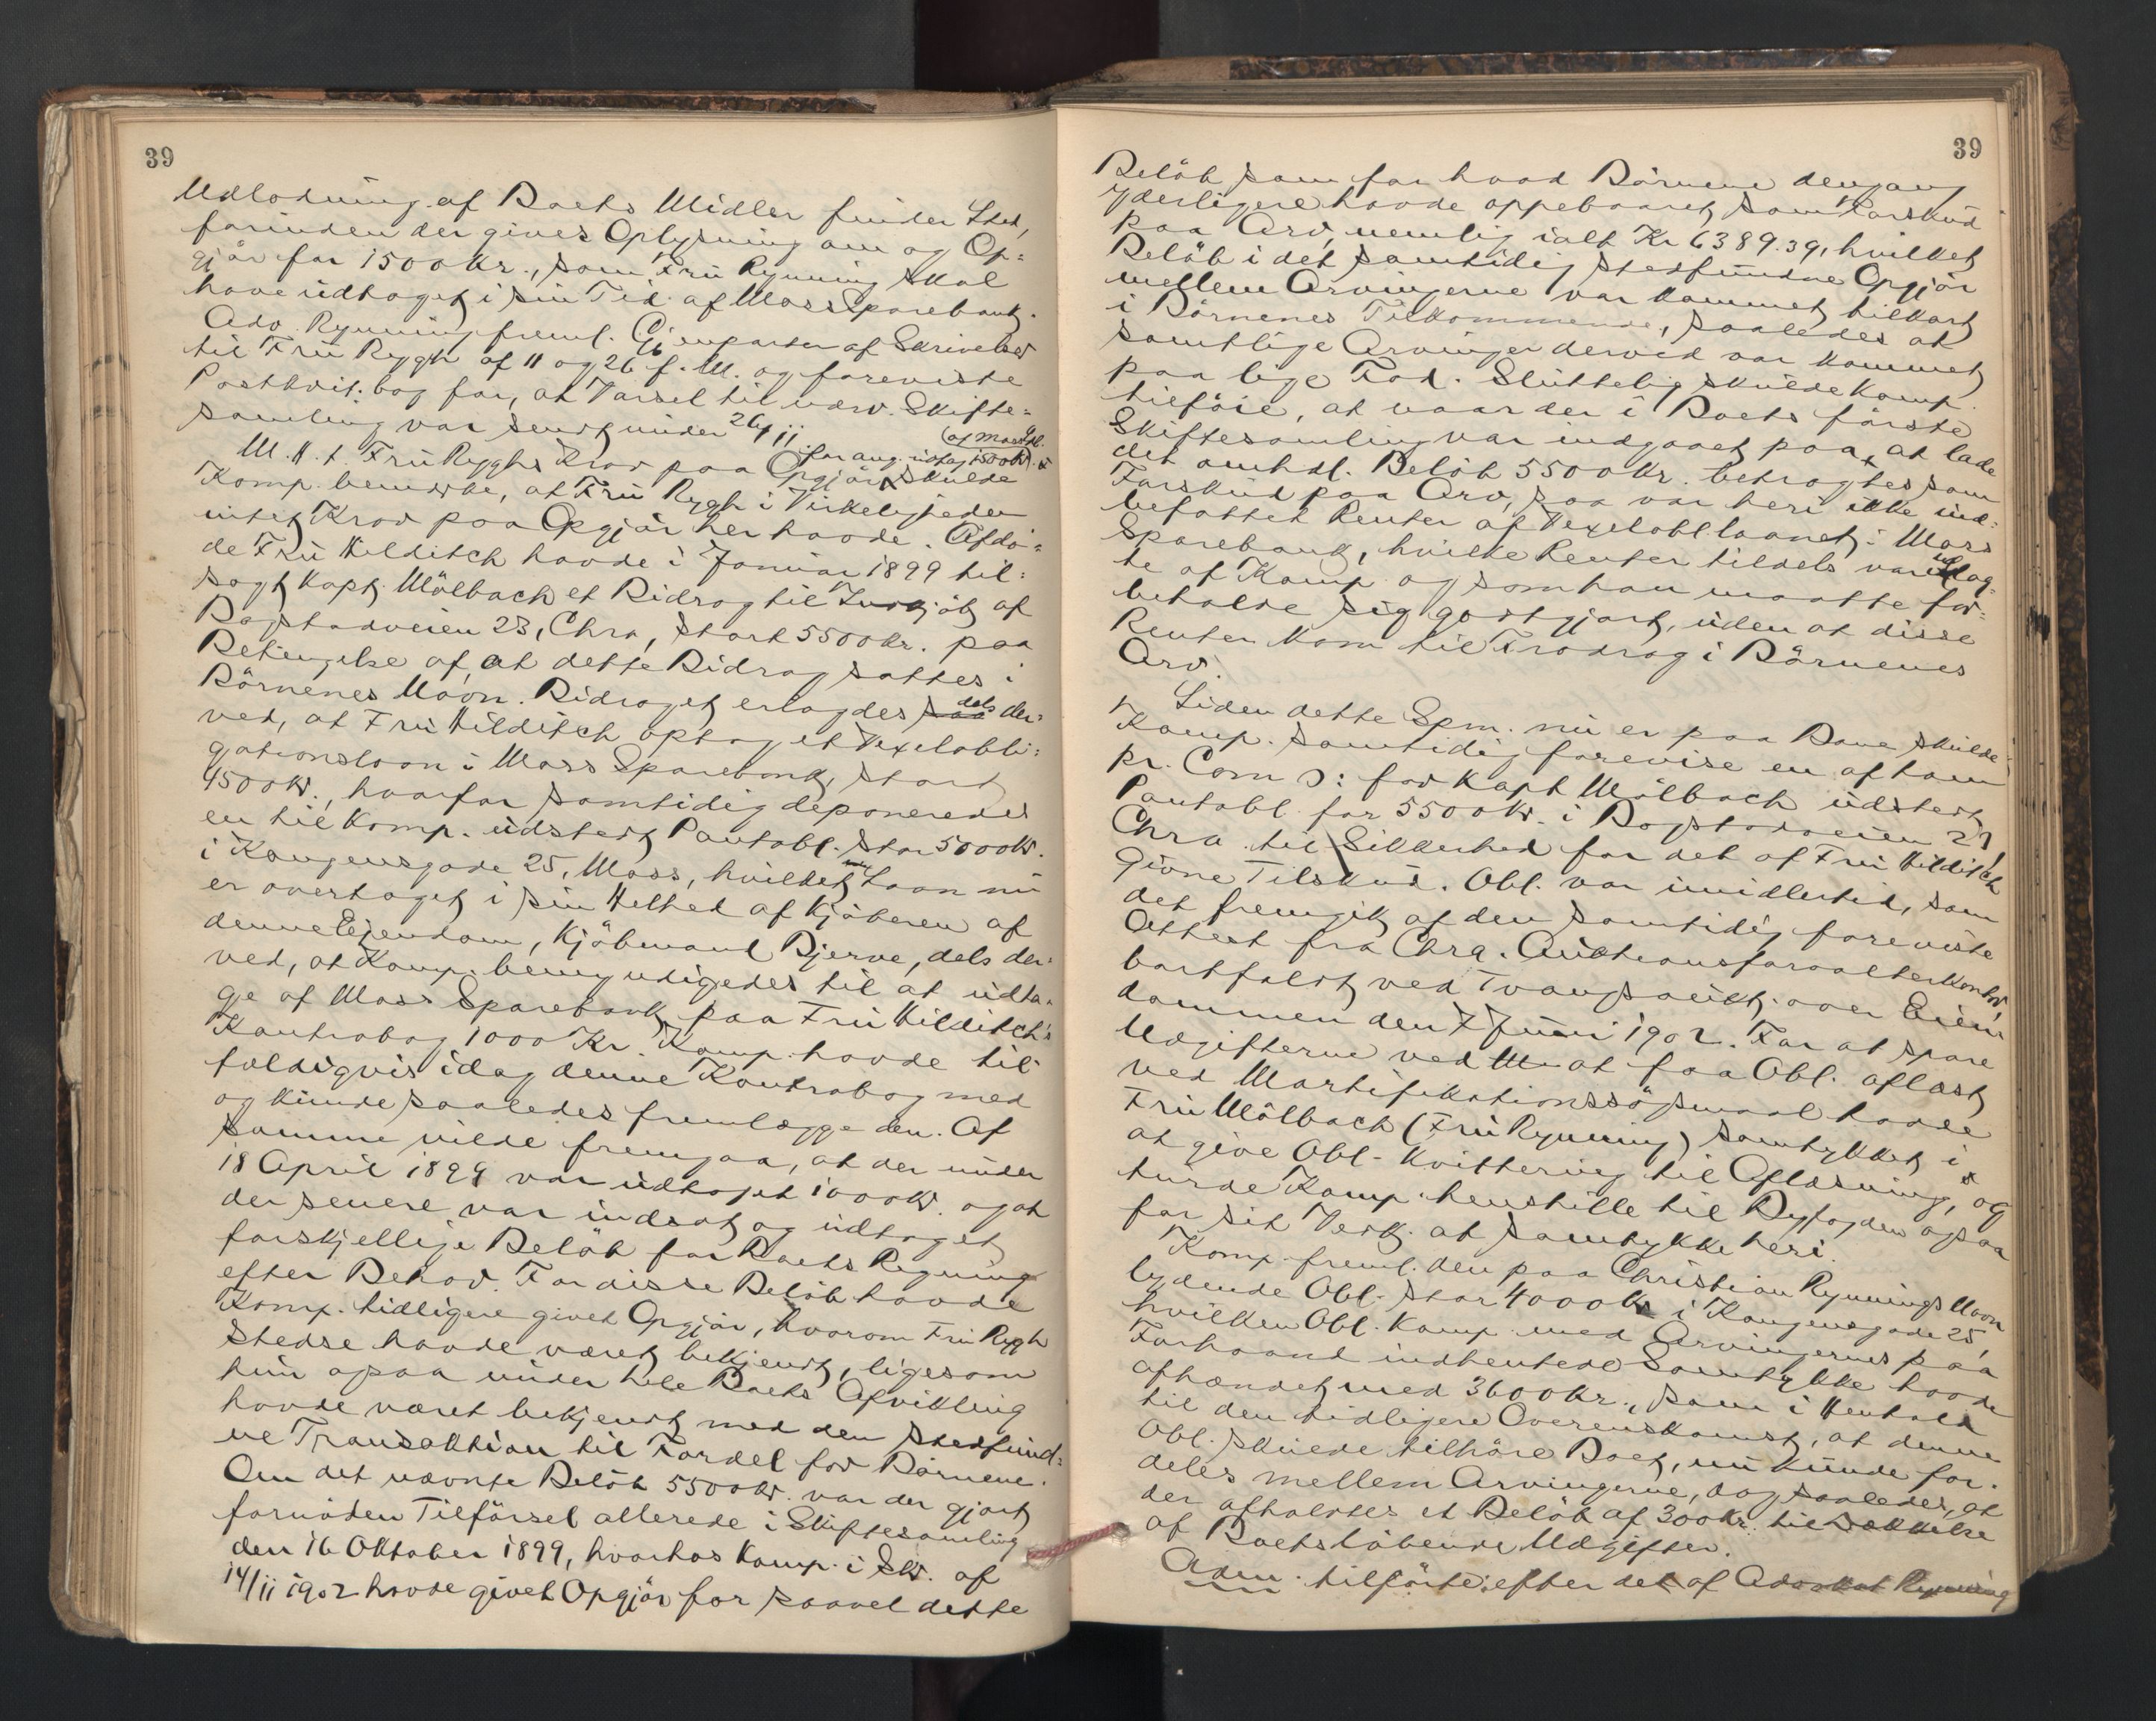 39
Udlodning af Boets Midler finder Sted,
forinden der gives Oplysning om og Op-
gjör for 1500 Kr., som Fru Rynning skal
have udtaget i sin Tid af Moss Sparebank.
Adv. Rynning freml. Gjenparter af Skrivelser
til Fru Rygh af 11 og 26 f. M. og foreviste
Postkvit.bog for, at Varsel til udv. Skifte-
samling var sendt under 26/11.
(af Moss Spb.
for ang. udtag. 1500 Kr.
M. H. t. Fru Ryghs Krav paa Opgjör skulde
Komp. bemærke, at Fru Rygh i Virkeligheden
intet Krav paa Opgjör her havde. Afdö-
de Fru Hilditch havde i Januar 1899 til-
sagt Kapt. Mölbach et Bidrag til Indkjöb af
Bogstadveien 23, Chra, stort 5500 Kr. paa
Betingelse af, at dette Bidrag sattes i
Börnenes Navn. Bidraget erlagdes dels der-
ved, at Fru Hilditch optog et Vexelobli-
gationslaan i Moss Sparebank, stort
4500 Kr., hvorfor samtidig deponeredes
en til Komp. udstedt Pantobl. stor 5000 Kr.
i Kongensgade 25, Moss, hvilket Laan nu
er overtaget i sin Helhed af Kjöberen af
denne Eiendom, Kjöbmand Bjerve, dels der-
ved, at Komp. bemyndigedes til at udta-
ge af Moss Sparebank paa Fru Hilditch's
Kontrabog 1000 Kr. Komp. havde til-
fældigvis idag denne Kontrabog med
og kunde saaledes fremlægge den. Af
samme vilde fremgaa, at der under
18 April 1899 var udtaget 1000 Kr. og at
der senere var indsat og udtaget
forskjellige Belöb for Boets Regning
efter Behov. For disse Belöb havde
Komp. tidligere givet Opgjör, hvorom Fru Rygh
stedse havde været bekjendt, ligesom
hun ogsaa under hele Boets Afvikling
havde været bekjendt med den stedfund-
ne Transaktion til Fordel for Börnene.
Om det nævnte Belöb 5500 Kr. var der gjort
fornöden Tilförsel allerede i Skiftesamling
den 16 Oktober 1899, hvorhos Komp. i Skr. af
14/11 1902 havde givet Opgjör for saavel dette
39
Belöb som for hvad Börnene dengang
yderligere havde oppebaaret som Forskud
paa Arv, nemlig ialt Kr 6389.39, hvilket
Belöb i det samtidig stedfundne Opgjör
mellem Arvingerne var kommet tilkort
i Börnenes Tilkommende, saaledes at
samtlige Arvinger derved var kommet
paa lige Fod. Sluttelig skulde Komp.
tilföie, at naar der i Boets förste
Skiftesamling var indgaaet paa, at lade
det omhdl. Belöb 5500 Kr. betragtes som
Forskud paa Arv, saa var heri ikke ind-
befattet Renter af Vexelobl.laanet i Moss
Sparebank, hvilke Renter tildels var udlag-
te af Komp. og som han maatte for-
beholde sig godtgjort, uden at disse
Renter kom til Fradrag i Börnenes
Arv.
Siden dette Spm. nu er paa Bane skulde
Komp. samtidig forevise en af ham
pr. Com ɔ: for Kapt Mölbach udstedt
Pantobl. for 5500 Kr. i Bogstadveien 23,
Chra. til Sikkerhed for det af Fru Hilditch
givne Tilskud. Obl. var imidlertid, som
det fremgik af den samtidig foreviste
Attest fra Chra. Auktionsforvalterkontor
bortfaldt ved Tvangsaukt. over Eien-
dommen den 7 Juni 1902. For at spare
Udgifterne ved at faa Obl. aflæst
ved Mortifikationssögsmaal havde
Fru Mölbach (Fru Rynning) samtykket i
at give Obl. Kvittering til Aflæsning, og
turde Komp. henstille til Byfogden ogsaa
for sit Vedk. at samtykke heri.
Komp. freml. den paa Christian Rynnings Navn
lydende Obl. stor 4000 Kr i Kongensgade 25,
hvilken Obl. Komp. med Arvingernes paa
Forhaand indhentede Samtykke havde
afhændet med 3600 Kr., som i Henhold
til den tidligere Overenskomst, at denne
Obl. skulde tilhöre Boet, nu kunde for-
deles mellem Arvingerne, dog saaledes, at
der afholdtes et Belöb af 300 Kr. til Dækkelse
af Boets löbende Udgifter.
Adm. tilförte: efter det af Advokat Rynning